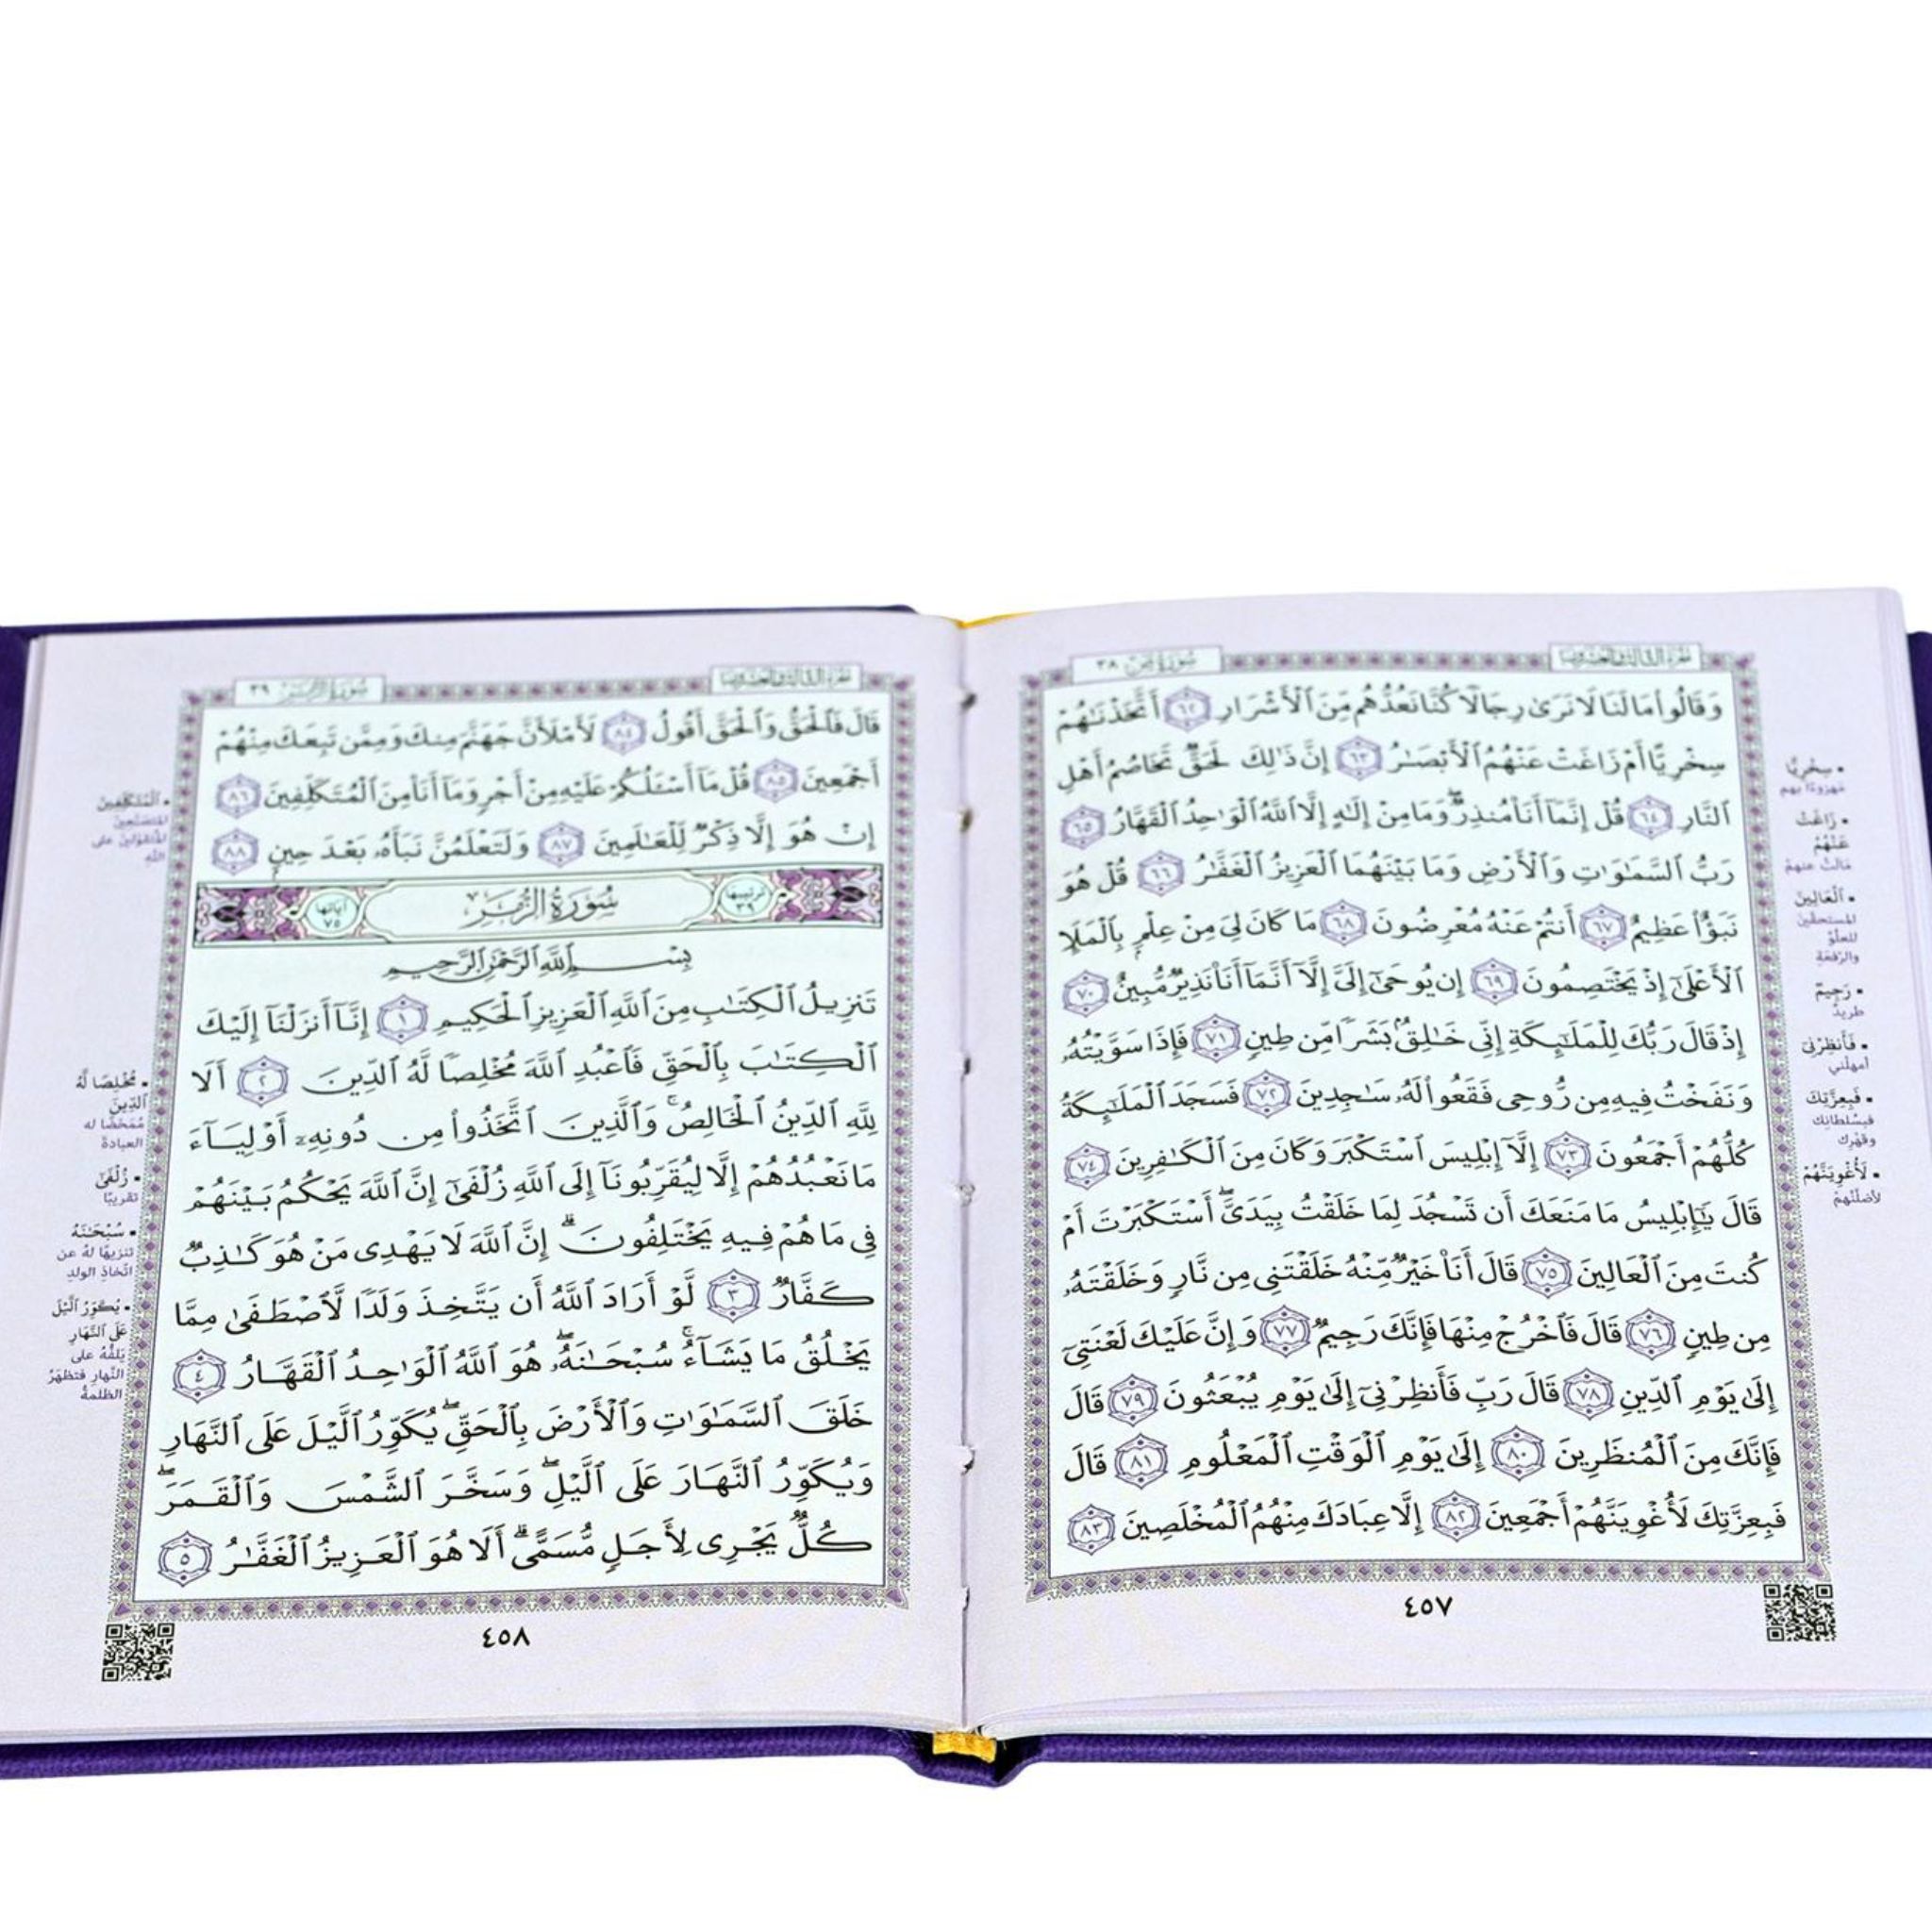 الجزء الثالث والعشرون
سُورَةُ صٓ ٣٨
وَقَالُوا۟ مَا لَنَا لَا نَرَىٰ رِجَالًا كُنَّا نَعُدُّهُم مِّنَ ٱلْأَشْرَارِ ٦٢ أَتَّخَذْنَـٰهُمْ
سِخْرِيًّا أَمْ زَاغَتْ عَنْهُمُ ٱلْأَبْصَـٰرُ ٦٣ إِنَّ ذَٰلِكَ لَحَقٌّ تَخَاصُمُ أَهْلِ
ٱلنَّارِ ٦٤ قُلْ إِنَّمَآ أَنَا۠ مُنذِرٌ ۖ وَمَا مِنْ إِلَـٰهٍ إِلَّا ٱللَّهُ ٱلْوَٰحِدُ ٱلْقَهَّارُ ٦٥
رَبُّ ٱلسَّمَـٰوَٰتِ وَٱلْأَرْضِ وَمَا بَيْنَهُمَا ٱلْعَزِيزُ ٱلْغَفَّـٰرُ ٦٦ قُلْ هُوَ
نَبَؤٌا۟ عَظِيمٌ ٦٧ أَنتُمْ عَنْهُ مُعْرِضُونَ ٦٨ مَا كَانَ لِىَ مِنْ عِلْمٍۭ بِٱلْمَلَإِ
ٱلْأَعْلَىٰٓ إِذْ يَخْتَصِمُونَ ٦٩ إِن يُوحَىٰٓ إِلَىَّ إِلَّآ أَنَّمَآ أَنَا۠ نَذِيرٌ مُّبِينٌ ٧٠
إِذْ قَالَ رَبُّكَ لِلْمَلَـٰٓئِكَةِ إِنِّى خَـٰلِقٌۢ بَشَرًا مِّن طِينٍ ٧١ فَإِذَا سَوَّيْتُهُۥ
وَنَفَخْتُ فِيهِ مِن رُّوحِى فَقَعُوا۟ لَهُۥ سَـٰجِدِينَ ٧٢ فَسَجَدَ ٱلْمَلَـٰٓئِكَةُ
كُلُّهُمْ أَجْمَعُونَ ٧٣ إِلَّآ إِبْلِيسَ ٱسْتَكْبَرَ وَكَانَ مِنَ ٱلْكَـٰفِرِينَ ٧٤
قَالَ يَـٰٓإِبْلِيسُ مَا مَنَعَكَ أَن تَسْجُدَ لِمَا خَلَقْتُ بِيَدَىَّ ۖ أَسْتَكْبَرْتَ أَمْ
كُنتَ مِنَ ٱلْعَالِينَ ٧٥ قَالَ أَنَا۠ خَيْرٌ مِّنْهُ خَلَقْتَنِى مِن نَّارٍ وَخَلَقْتَهُۥ
مِن طِينٍ ٧٦ قَالَ فَٱخْرُجْ مِنْهَا فَإِنَّكَ رَجِيمٌ ٧٧ وَإِنَّ عَلَيْكَ لَعْنَتِىٓ
إِلَىٰ يَوْمِ ٱلدِّينِ ٧٨ قَالَ رَبِّ فَأَنظِرْنِىٓ إِلَىٰ يَوْمِ يُبْعَثُونَ ٧٩ قَالَ
فَإِنَّكَ مِنَ ٱلْمُنظَرِينَ ٨٠ إِلَىٰ يَوْمِ ٱلْوَقْتِ ٱلْمَعْلُومِ ٨١ قَالَ
فَبِعِزَّتِكَ لَأُغْوِيَنَّهُمْ أَجْمَعِينَ ٨٢ إِلَّا عِبَادَكَ مِنْهُمُ ٱلْمُخْلَصِينَ ٨٣
• سِخْرِيًّا
مَهزوءًا بهم
• زَاغَتْ
عَنْهُمُ
مَالتْ عنهمْ
• ٱلْعَالِينَ
المستحقينَ
للعلوِّ
والرِّفعَةِ
• رَجِيمٌ
طريدٌ
• فَأَنظِرْنِىٓ
أمهلْني
• فَبِعِزَّتِكَ
فبسُلطانِك
وقَهْرِك
• لَأُغْوِيَنَّهُمْ
لأضلّنّهمْ
٤٥٧
الجزء الثالث والعشرون
سُورَةُ الزُّمَر ٣٩
قَالَ فَٱلْحَقُّ وَٱلْحَقَّ أَقُولُ ٨٤ لَأَمْلَأَنَّ جَهَنَّمَ مِنكَ وَمِمَّن تَبِعَكَ مِنْهُمْ
أَجْمَعِينَ ٨٥ قُلْ مَآ أَسْـَٔلُكُمْ عَلَيْهِ مِنْ أَجْرٍ وَمَآ أَنَا۠ مِنَ ٱلْمُتَكَلِّفِينَ ٨٦
إِنْ هُوَ إِلَّا ذِكْرٌ لِّلْعَـٰلَمِينَ ٨٧ وَلَتَعْلَمُنَّ نَبَأَهُۥ بَعْدَ حِينٍۭ ٨٨
ترتيبها ٣٩ سُورَةُ الزُّمَر آياتها ٧٥
بِسْمِ ٱللَّهِ ٱلرَّحْمَـٰنِ ٱلرَّحِيمِ
تَنزِيلُ ٱلْكِتَـٰبِ مِنَ ٱللَّهِ ٱلْعَزِيزِ ٱلْحَكِيمِ ١ إِنَّآ أَنزَلْنَآ إِلَيْكَ
ٱلْكِتَـٰبَ بِٱلْحَقِّ فَٱعْبُدِ ٱللَّهَ مُخْلِصًا لَّهُ ٱلدِّينَ ٢ أَلَا
لِلَّهِ ٱلدِّينُ ٱلْخَالِصُ ۚ وَٱلَّذِينَ ٱتَّخَذُوا۟ مِن دُونِهِۦٓ أَوْلِيَآءَ
مَا نَعْبُدُهُمْ إِلَّا لِيُقَرِّبُونَآ إِلَى ٱللَّهِ زُلْفَىٰٓ إِنَّ ٱللَّهَ يَحْكُمُ بَيْنَهُمْ
فِى مَا هُمْ فِيهِ يَخْتَلِفُونَ ۗ إِنَّ ٱللَّهَ لَا يَهْدِى مَنْ هُوَ كَـٰذِبٌ
كَفَّارٌ ٣ لَّوْ أَرَادَ ٱللَّهُ أَن يَتَّخِذَ وَلَدًا لَّٱصْطَفَىٰ مِمَّا
يَخْلُقُ مَا يَشَآءُ ۚ سُبْحَـٰنَهُۥ ۖ هُوَ ٱللَّهُ ٱلْوَٰحِدُ ٱلْقَهَّارُ ٤
خَلَقَ ٱلسَّمَـٰوَٰتِ وَٱلْأَرْضَ بِٱلْحَقِّ ۖ يُكَوِّرُ ٱلَّيْلَ عَلَى ٱلنَّهَارِ
وَيُكَوِّرُ ٱلنَّهَارَ عَلَى ٱلَّيْلِ ۖ وَسَخَّرَ ٱلشَّمْسَ وَٱلْقَمَرَ ۖ
كُلٌّ يَجْرِى لِأَجَلٍ مُّسَمًّى ۗ أَلَا هُوَ ٱلْعَزِيزُ ٱلْغَفَّـٰرُ ٥
• ٱلْمُتَكَلِّفِينَ
المتصنّعينَ
المُتقوّلينَ على
اللهِ
• مُخْلِصًا لَّهُ
ٱلدِّينَ
مُمَحّضًا له
العبادةَ
• زُلْفَىٰٓ
تقريبًا
• سُبْحَـٰنَهُۥ
تنزيهًا لهُ عن
اتّخاذِ الولدِ
• يُكَوِّرُ ٱلَّيْلَ
عَلَى ٱلنَّهَارِ
يَلُفُّهُ على
النّهارِ فتظهَرُ
الظلمةُ
٤٥٨